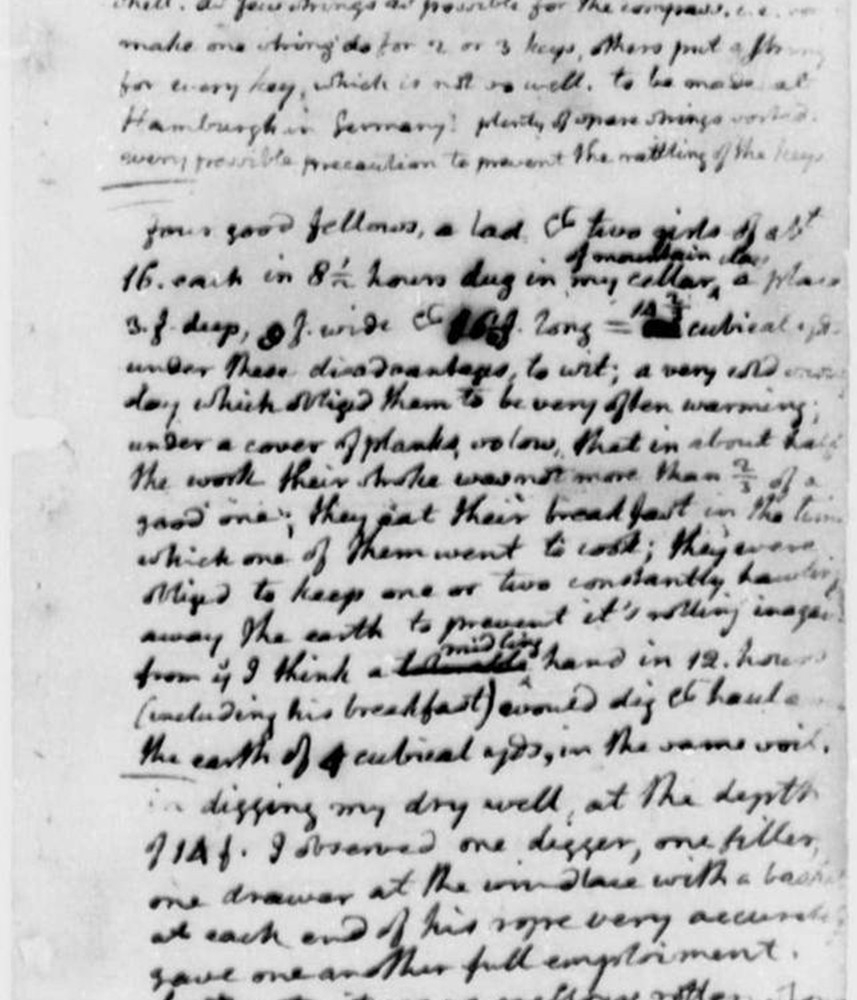 shell. as few strings as possible for the compass. i.e.
make one string do for 2 or 3 keys, others put a string
for every key, which is not so well. to be made at
Hamburgh in Germany! plenty of spare strings
every possible precaution to prevent the rattling of the keys
four good fellows, a lad & two girls of abt
16. each in 8½ hours dug in my cellar, of mountain clay a place
3. f. deep, 8 f. wide & 16½ f. long = 14⅔ cubical yds.
under these disadvantages, to wit; a very cold snowy
day which obliged them to be very often warming;
under a cover of planks, so low, that in about half
the work their stroke was not more than ⅔ of a
good one; they eat their breakfast in the time
which one of them went to cook; they were
obliged to keep one or two constantly hawling
away the earth to prevent it's rolling in again.
from ys I think a midling hand in 12. hours
(including his breakfast) would dig & haul
the earth of 4 cubical yds, in the same soil.
in digging my dry well, at the depth
of 14 f. I observed one digger, one filler,
one drawer at the windlace with a basket
at each end of his rope very accurately
gave one another full emploiment.